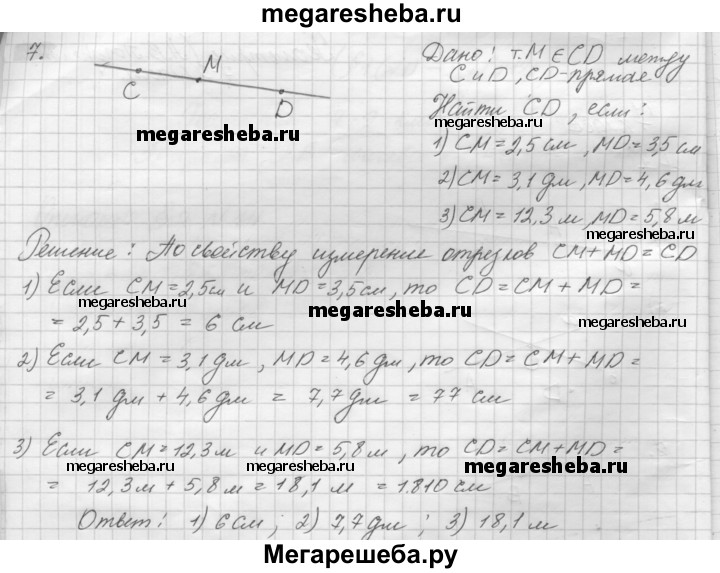 megaresheba.ru
7.
C
M
D
Дано: т.M∈CD между
C и D, CD-прямая
Найти CD, если:
1) CM=2,5 см, MD=3,5 см
2) CM=3,1 дм, MD=4,6 дм
3) CM=12,3 м, MD=5,8 м
megaresheba.ru
megaresheba.ru
megaresheba.ru
Решение: По свойству измерение отрезков CM+MD=CD
1) Если CM=2,5см и MD=3,5см, то CD=CM+MD=
megaresheba.ru
megaresheba.ru
megaresheba.ru
= 2,5+3,5 = 6 см
2) Если CM=3,1 дм, MD=4,6 дм, то CD=CM+MD=
= 3,1 дм + 4,6 дм = 7,7 дм = 77 см
megaresheba.ru
3) Если CM=12,3 м и MD=5,8 м, то CD=CM+MD=
megaresheba.ru
megaresheba.ru
megaresheba.ru
= 12,3 м + 5,8 м = 18,1 м = 1810 см
Ответ: 1) 6 см; 2) 7,7 дм; 3) 18,1 м
Мегарешеба.ру